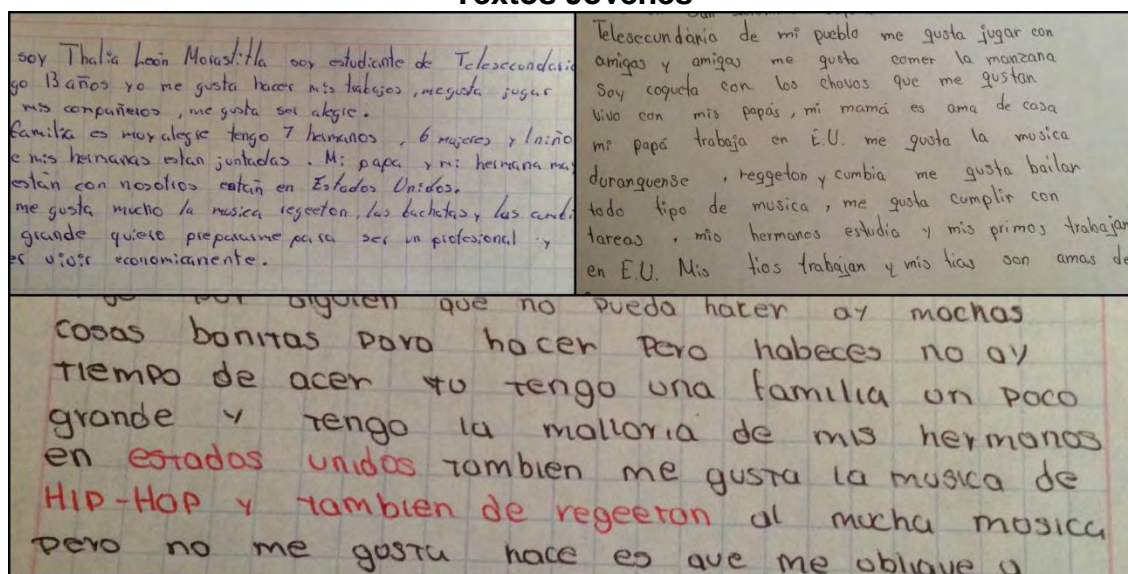 Textos Jóvenes
soy Thalia León Morastitla soy estudiante de Telesecundaria
go 13 años yo me gusta hacer mis trabajos, me gusta jugar
mis compañeros, me gusta ser alegre.
familia es muy alegre tengo 7 hermanos, 6 mujeres y 1 niño
e mis hermanas estan juntadas. Mi papa y mi hermana may
están con nosotros están en Estados Unidos.
me gusta mucho la musica regeeton, las bachatas, las cumbi
grande quiero prepararme para ser un profesional y
vivir economicamente.
Telesecundaria de mi pueblo me gusta jugar con
amigas y amigas me gusta comer la manzana
Soy coqueta con los chavos que me gustan
vivo con mis papás, mi mamá es ama de casa
mi papá trabaja en E.U. me gusta la musica
duranguense, reggeton y cumbia me gusta bailar
todo tipo de musica, me gusta cumplir con
tareas, mis hermanos estudia y mis primos trabajan
en E.U. Mis tios trabajan y mis tias son amas de
que no puedo hacer ay mochas
cosas bonitas para hacer Pero habeces no ay
tiempo de acer yo tengo una familia un poco
grande y tengo la malloria de mis hermanos
en estados unidos tombien me gusta la musica de
HIP-HOP y tambien de regeeton al mucha mosica
pero no me gosta hace es que me oblique a